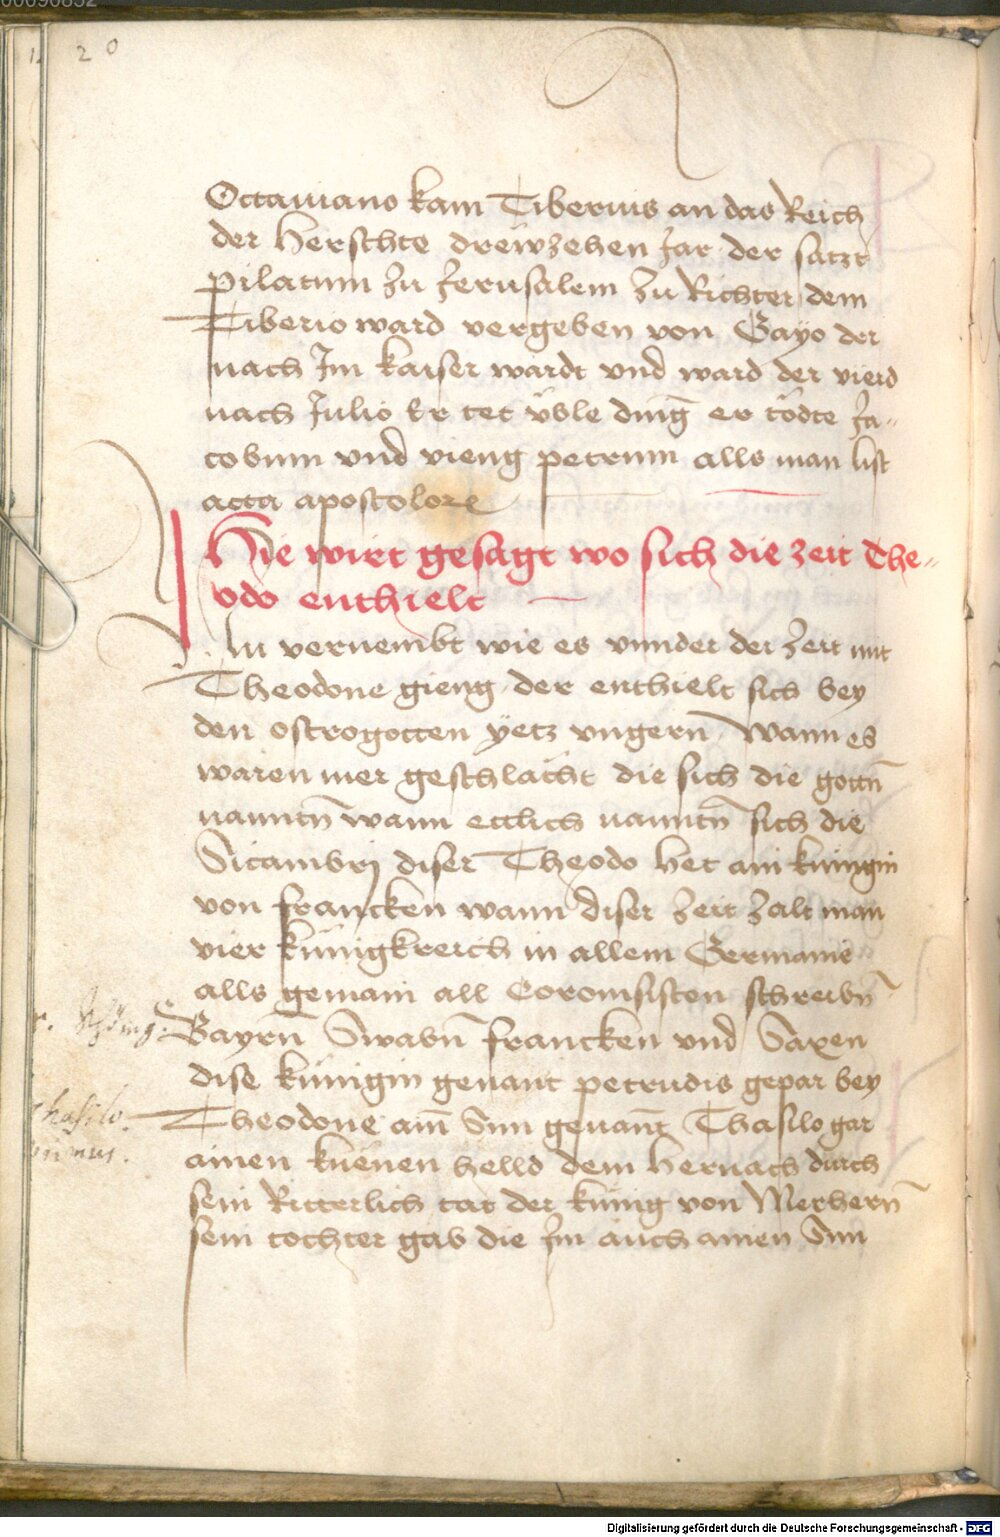 Octauiano kam Tiberius an das Reich
der herschte drewzehen Jar der satzt
pilatum zu Jerusalem zu Richter dem
Tiberio ward vergeben von Gayo der
nach Jm kaiser wardt vnd ward der vierd
nach Julio Er tet üble ding er tödte Ja-
cobum vnd vieng petrum alls man list
acta apostolor
Hie wirt gesagt wo sich die zeit The-
odo enthielt
Nu vernembt wie es vnnder der zeit mit
Theodone gieng der enthielt sich bey
den ostrogotten yetz vngern̄ Wann es
waren mer geschlächt die sich die gottn̄
nanntn̄ wann ettlich nanntn̄ sich die
Sicambrj diser Theodo het ain künigin
von francken wann diser zeit zalt man
vier künigkreich in allem Germanie
alls gemain all Coronisisten schreibn̄
Bayrn̄ Swabn̄ francken vnd Saxen
dise künigin genant petrudis gepar bey
Theodone ain̄ Sun genant Thasilo gar
ainen küenen helld dem hernach durch
sein Ritterlich tat der künig von Merhern̄
sein tochter gab die Jm auch ainen Sun
Thasilo
20
Digitalisierung gefördert durch die Deutsche Forschungsgemeinschaft - DFG